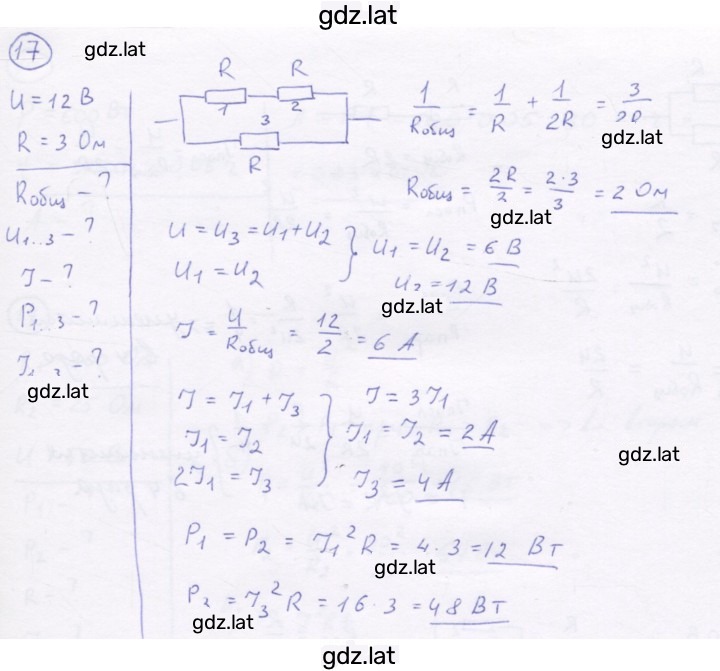 gdz.lat
17 gdz.lat
U = 12 В
R = 3 Ом
Rобщ - ?
U1...3 - ?
J - ?
P1...3 - ?
J1...3 - ?
gdz.lat
R R
1 2
3
R
1/Rобщ = 1/R + 1/2R = 3/2R
gdz.lat
Rобщ = 2R/2 = 2·3/3 = 2 Ом
gdz.lat
U = U3 = U1 + U2 } U1 = U2 = 6 В
U1 = U2 U3 = 12 В
gdz.lat
J = U/Rобщ = 12/2 = 6 А
J = J1 + J3 } J = 3J1
J1 = J2 J1 = J2 = 2А
2J1 = J3 J3 = 4А
gdz.lat
P1 = P2 = J1² R = 4·3 = 12 Вт
gdz.lat
P3 = J3² R = 16·3 = 48 Вт
gdz.lat
gdz.lat